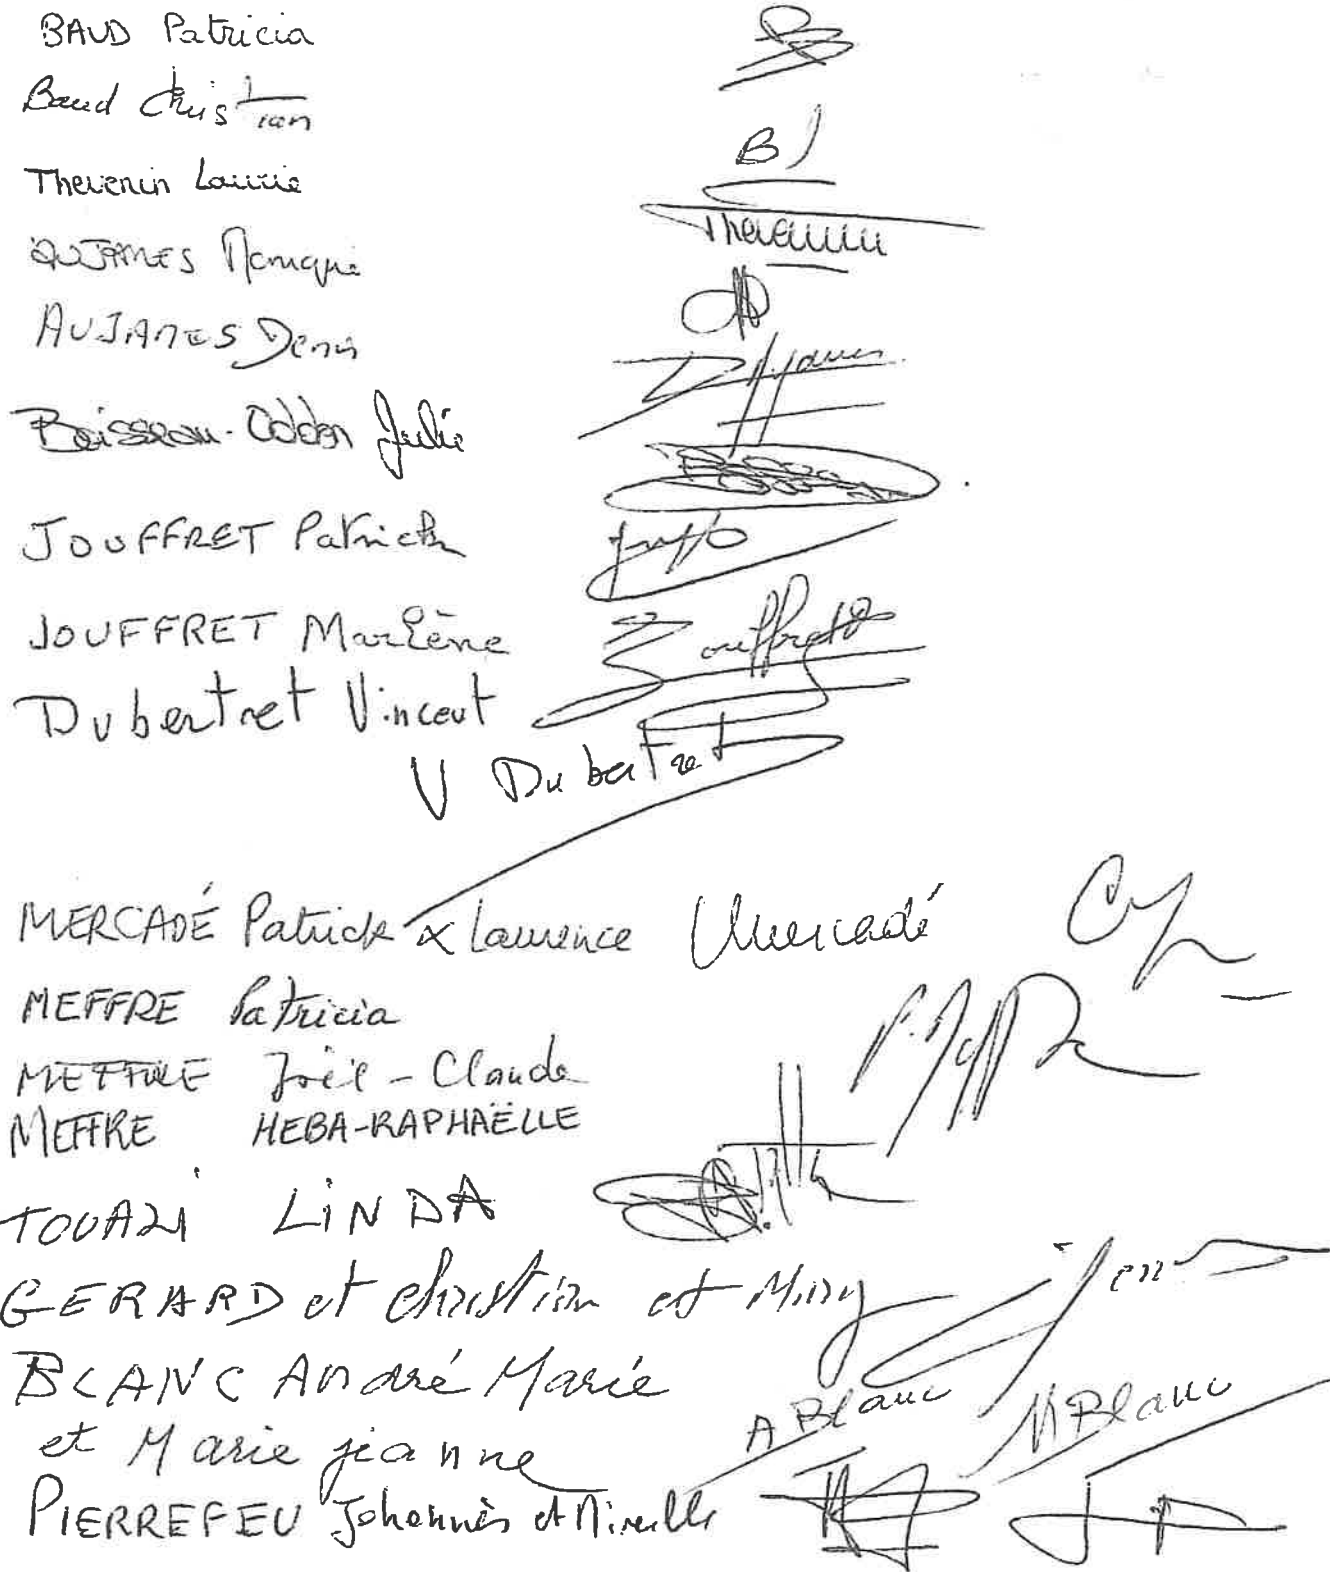 BAUD Patricia
Baud Christian
B
Thevenin Laurie
Thevenin
AUJAMES Monique
AUJAMES Denis
Boisseau-Oddon Julie
JOUFFRET Patrick
JOUFFRET Marlène
Jouffret
Dubertret Vincent
V Dubertret
MERCADÉ Patrick & Laurence Mercadé
MEFFRE Patricia
MEFFRE Joël-Claude
MEFFRE HEBA-RAPHAËLLE
TOUAZI LINDA
GERARD et Christian et Mimy
BLANC André Marie
A Blanc M Blanc
et Marie jeanne
PIERREFEU Johannès et Mireille